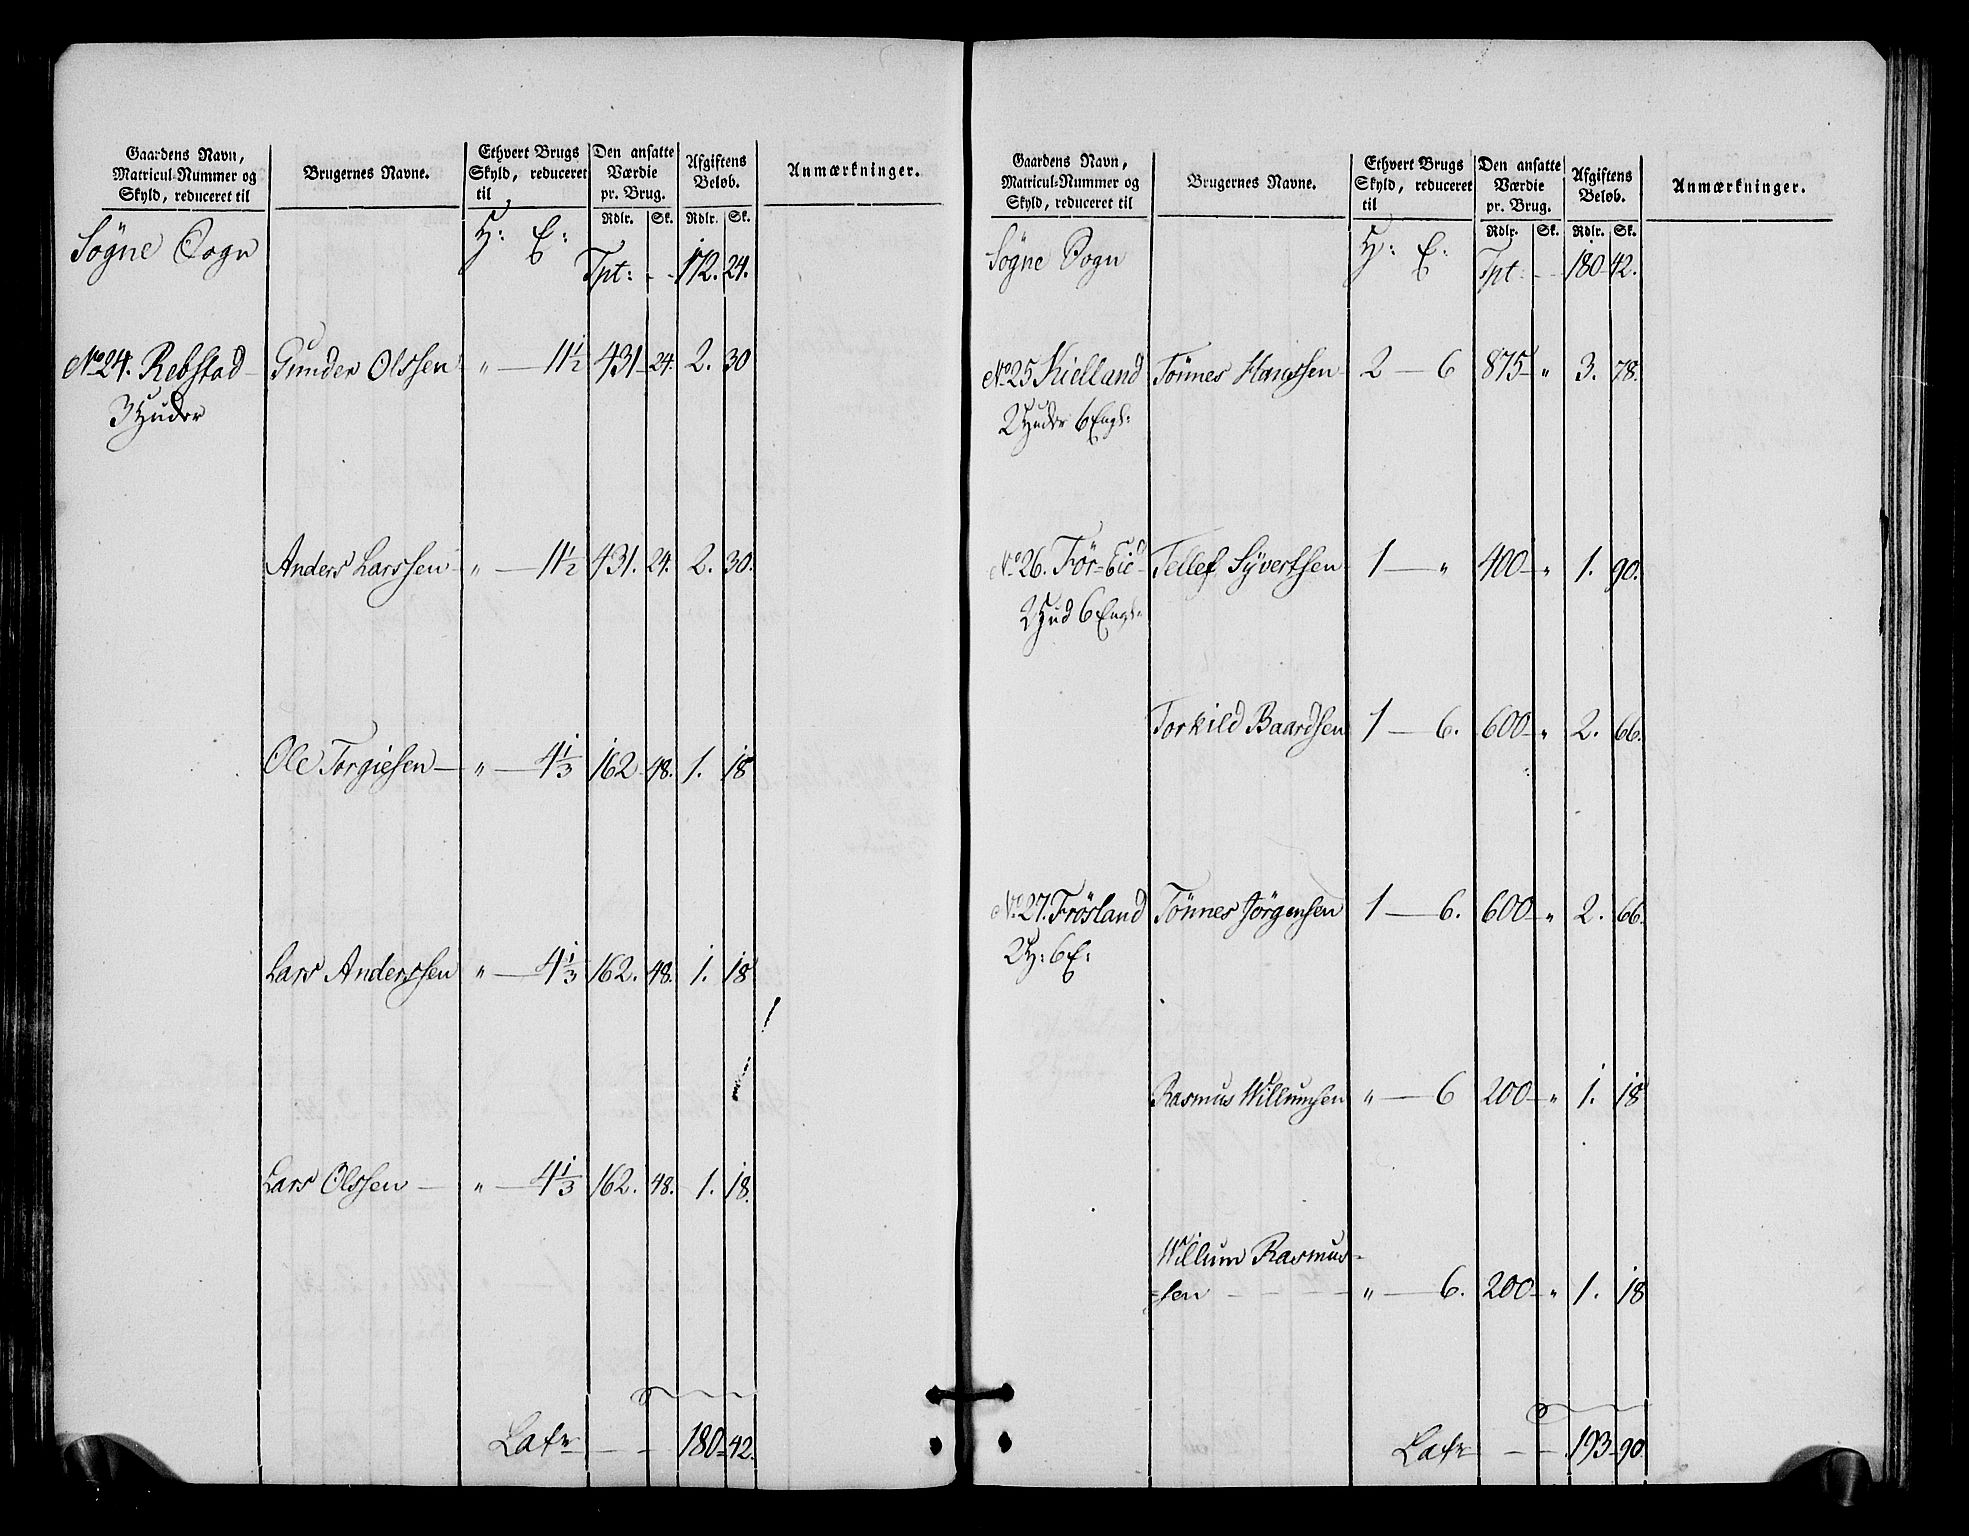 Gaardens Navn,
Matricul-Nummer og
Skyld, reduceret til
Brugernes Navne.
Ethvert Brugs
Skyld, reduceret
til
Den ansatte
Værdie
pr. Brug.
Afgiftens
Beløb.
Anmærkninger.
Rdlr. Sk. Rdlr. Sk.
Søgne Sogn H: E: Tpt: - - 172. 24.
No 24. Rebstad Gunder Olssen " — 11½ 431 24. 2. 30
3 Huder
Anders Larssen " — 11½ 431. 24. 2. 30.
Ole Torgiesen — " — 4⅓ 162 48. 1. 18
Lars Anderssen " — 4⅓ 162. 48. 1. 18
Lars Olssen — " — 4⅓ 162. 48. 1. 18.
Latr — - 180 = 42.
Gaardens Navn,
Matricul-Nummer og
Skyld, reduceret til
Brugernes Navne.
Ethvert Brugs
Skyld, reduceret
til
Den ansatte
Værdie
pr. Brug.
Afgiftens
Beløb.
Anmærkninger.
Rdlr. Sk. Rdlr. Sk.
Søgne Sogn H: E: Tpt: - - 180 42.
No 25 Kielland Tönnes Hanssen 2 — 6 875 " 3. 78.
2 Huder 6 Engl:
No 26. För=Eid Tellef Syvertsen 1 — " 400 " 1. 90.
2 Hud 6 Engl:
Torkild Baardsen 1 — 6. 600 " 2. 66.
No 27. Frösland Tönnes Jörgensen 1 — 6. 600 " 2. 66.
2 H: 6 E:
Rasmus Willumsen " — 6 200 " 1. 18
Willum Rasmus=
=sen - - - - " — 6. 200 " 1. 18
Latr - - 193 = 90.